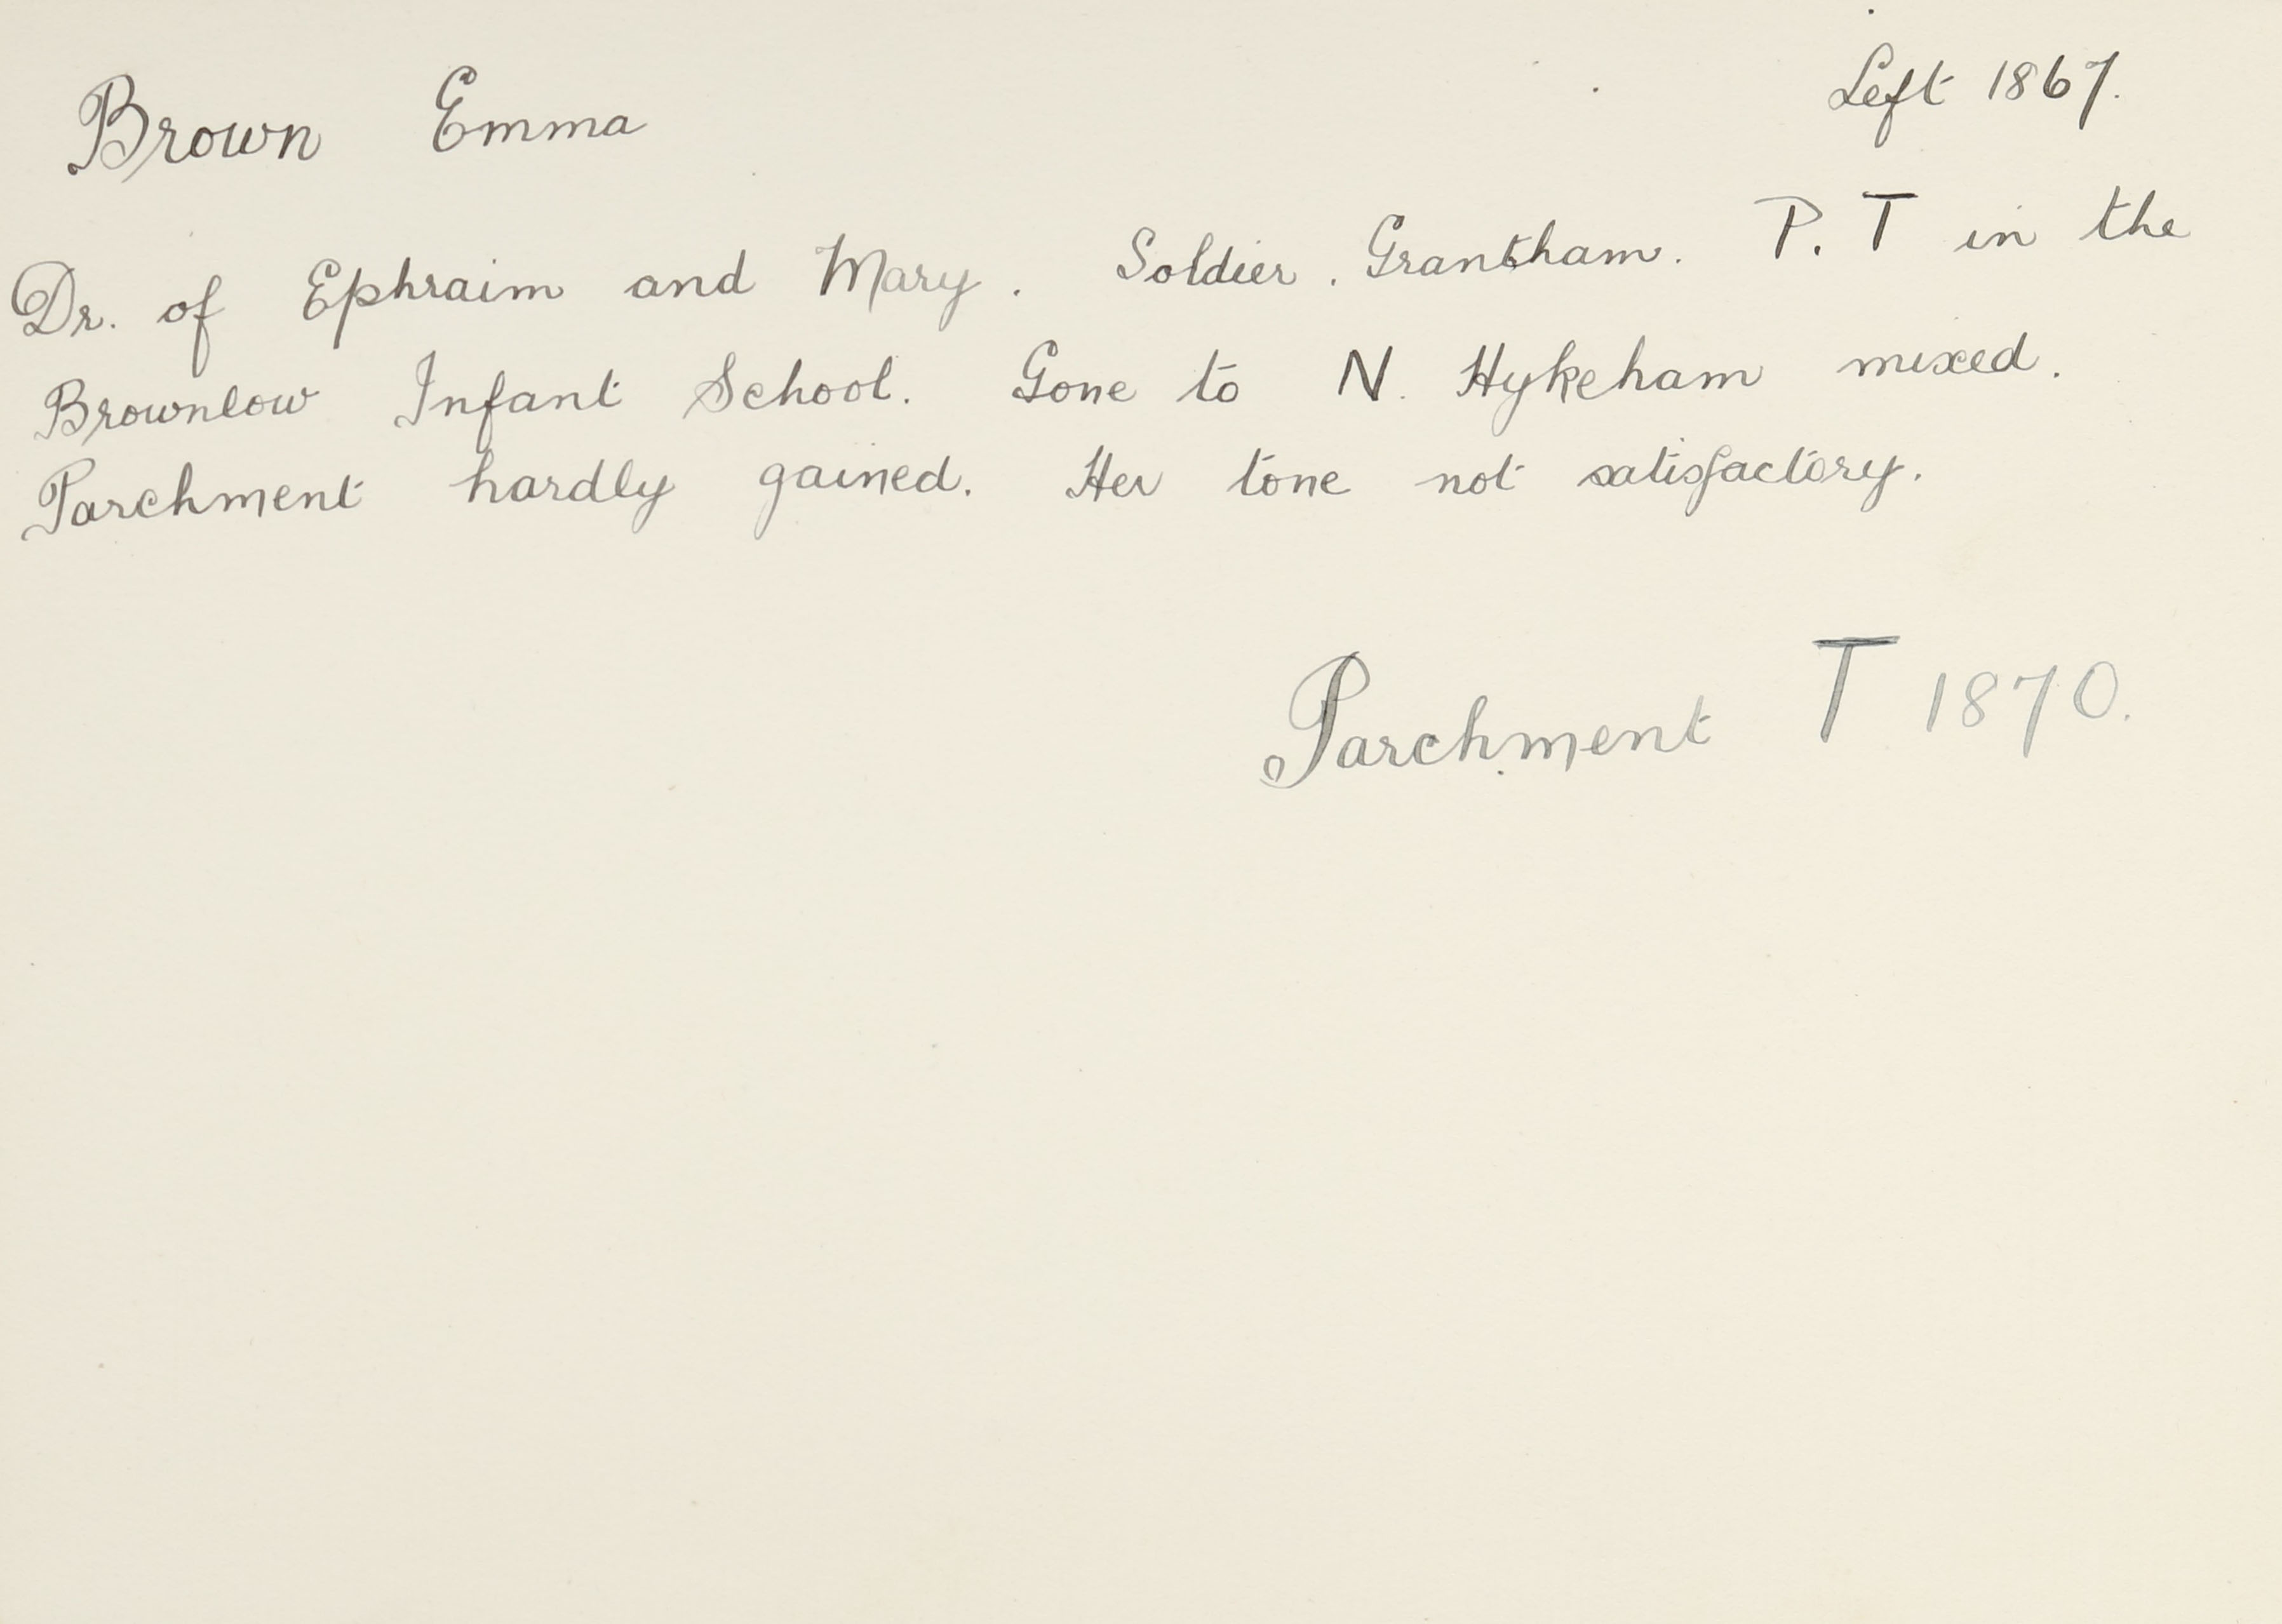 Brown Emma Left 1867.
Dr. of Ephraim and Mary. Soldier. Grantham. P. T in the
Brownlow Infant School. Gone to N. Hykeham mixed.
Parchment hardly gained. Her tone not satisfactory.
Parchment T 1870.